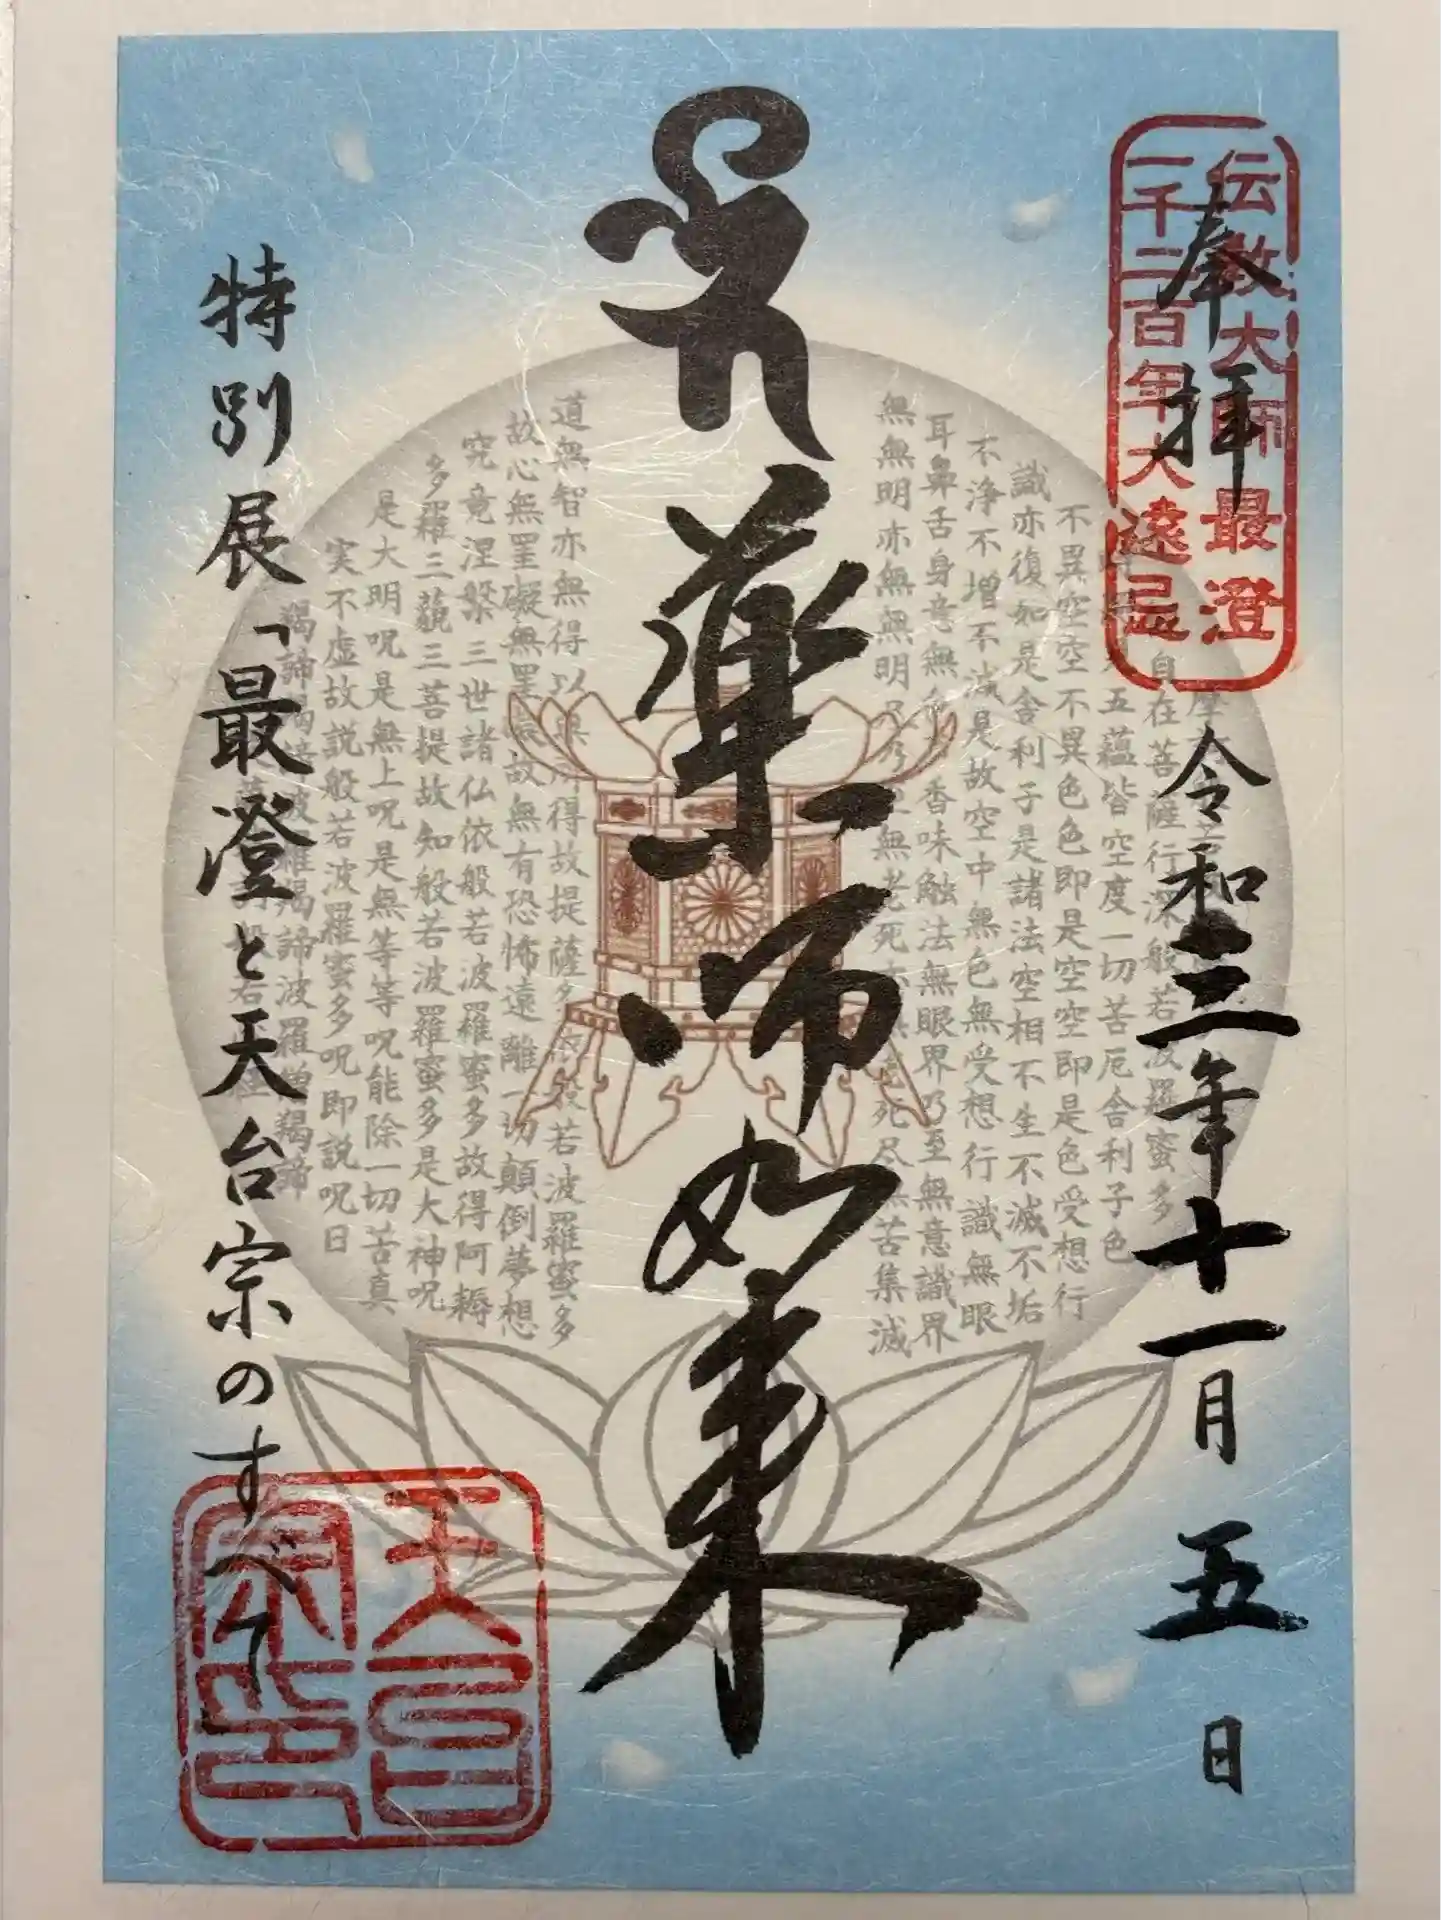 伝教大師最澄
一千二百年大遠忌
奉拝
令和三年十一月五日
薬師如来
特別展「最澄と天台宗のすべて
天台
宗印
自在菩薩行深般若波羅蜜多
時 五蘊皆空度一切苦厄舎利子色
不異空空不異色色即是空空即是色受想行
識亦復如是舎利子是諸法空相不生不滅不垢
不浄不増不減是故空中無色無受想行識無眼
耳鼻舌身意無 香味触法無眼界乃至無意識界
無無明亦無無明 無老死 死尽無苦集滅
道無智亦無得以無所得故提薩 般若波羅蜜多
故心無罣礙無罣 故無有恐怖遠離一切顛倒夢想
究竟涅槃三世諸仏依般若波羅蜜多故得阿耨
多羅三藐三菩提故知般若波羅蜜多是大神呪
是大明呪是無上呪是無等等呪能除一切苦真
実不虚故説般若波羅蜜多呪即説呪曰
羯諦 波羅羯諦波羅僧羯諦